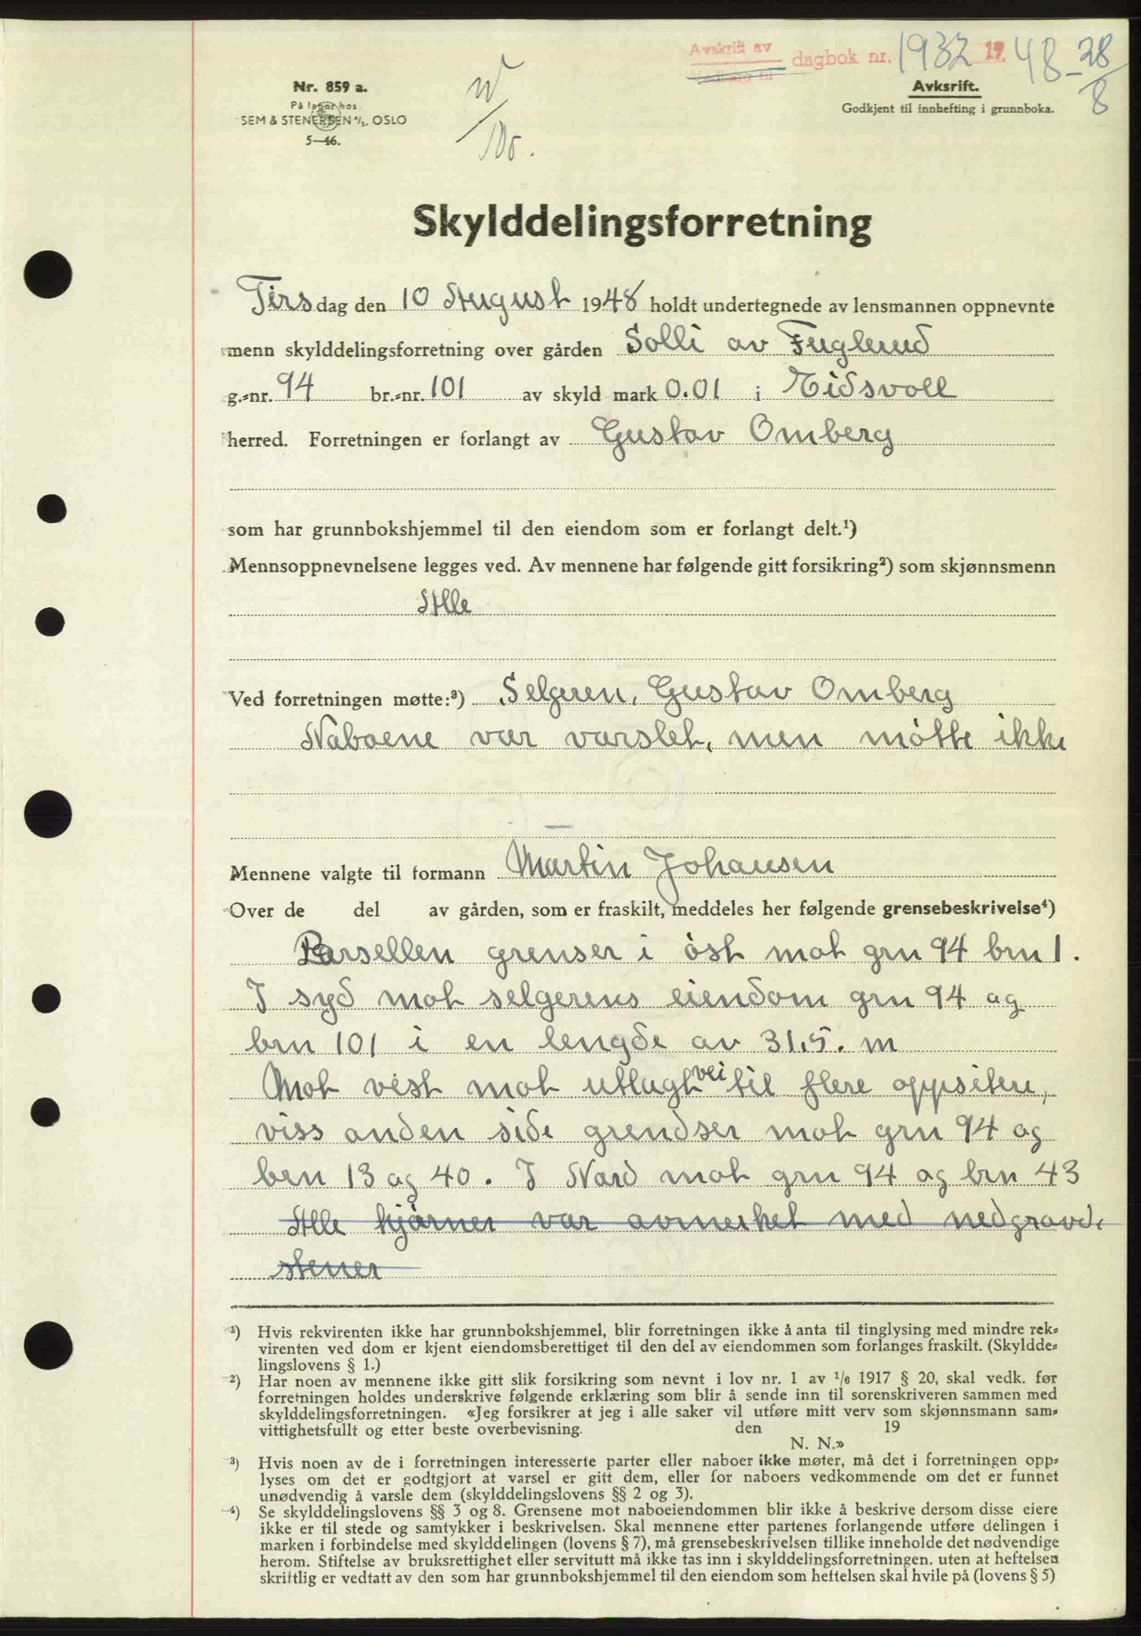 Avskrift av dagbok nr. 1932 1948 - 28/8
Vedlegg til
Nr. 859 a.
På lager hos
SEM & STENERSEN A/S, OSLO
5—46.
Avksrift.
Godkjent til innhefting i grunnboka.
Skylddelingsforretning
Tirsdag den 10 August 1948 holdt undertegnede av lensmannen oppnevnte
menn skylddelingsforretning over gården Solli av Fuglerud
g.-nr. 94 br.-nr. 101 av skyld mark 0.01 i Eidsvoll
herred. Forretningen er forlangt av Gustav Omberg
som har grunnbokshjemmel til den eiendom som er forlangt delt.¹)
Mennsoppnevnelsene legges ved. Av mennene har følgende gitt forsikring²) som skjønnsmenn
Alle
Ved forretningen møtte:³) Selgeren, Gustav Omberg
Naboene var varslet, men møtte ikke
Mennene valgte til formann Martin Johansen
Over de del av gården, som er fraskilt, meddeles her følgende grensebeskrivelse⁴)
Parsellen grenser i øst mot grn 94 brn 1.
I syd mot selgerens eiendom grn 94 og
brn 101 i en lengde av 31,5. m
Mot vest mot utlagt vei til flere oppsitere,
viss anden side grendser mot grn 94 og
brn 13 og 40. I Nord mot grn 94 og brn 43
Alle hjørner var avmerket med nedgravde
stener
¹) Hvis rekvirenten ikke har grunnbokshjemmel, blir forretningen ikke å anta til tinglysing med mindre rek-
virenten ved dom er kjent eiendomsberettiget til den del av eiendommen som forlanges fraskilt. (Skyldde-
lingslovens § 1.)
²) Har noen av mennene ikke gitt slik forsikring som nevnt i lov nr. 1 av 1/6 1917 § 20, skal vedk. før
forretningen holdes underskrive følgende erklæring som blir å sende inn til sorenskriveren sammen med
skylddelingsforretningen. «Jeg forsikrer at jeg i alle saker vil utføre mitt verv som skjønnsmann sam-
vittighetsfullt og etter beste overbevisning. den 19
N. N.»
³) Hvis noen av de i forretningen interesserte parter eller naboer ikke møter, må det i forretningen opp-
lyses om det er godtgjort at varsel er gitt dem, eller for naboers vedkommende om det er funnet
unødvendig å varsle dem (skylddelingslovens §§ 2 og 3).
⁴) Se skylddelingslovens §§ 3 og 8. Grensene mot naboeiendommen blir ikke å beskrive dersom disse eiere
ikke er til stede og samtykker i beskrivelsen. Skal mennene etter partenes forlangende utføre delingen i
marken i forbindelse med skylddelingen (lovens § 7), må grensebeskrivelsen tillike inneholde det nødvendige
herom. Stiftelse av bruksrettighet eller servitutt må ikke tas inn i skylddelingsforretningen. uten at heftelsen
skriftlig er vedtatt av den som har grunnbokshjemmel til den eiendom som heftelsen skal hvile på (lovens § 5)